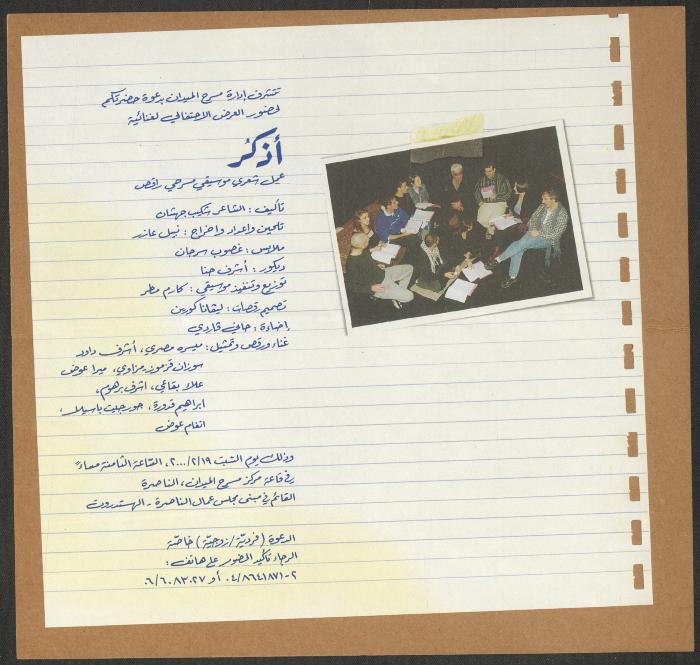 تتشرف إدارة مسرح الميدان بدعوة حضرتكم
لحضور العرض الاحتفالي لغنائية
أذكرُ
عمل شعري موسيقي مسرحي راقص
تأليف : الشاعر شكيب جهشان
تلحين واعداد واخراج : نبيل عازر
ملابس : غصوب سرحان
ديكور : أشرف حنا
توزيع وتنفيذ موسيقي : كارم مطر
تصميم رقصات : ليڤانا كورين
إضاءة : حاني قاردي
غناء ورقص وتمثيل : ميسره مصري، أشرف داود
سوزان قزموز رمزاوي، ميرا عوض
علاء بقاعي، اشرف برهوم،
ابراهيم قدورة، جورجيت باسيلا،
انغام عوض
وذلك يوم السّبت ٢٠٠٠/٢/١٩، السّاعة الثامنة مساءً
في قاعة مركز مسرح الميدان، الناصرة
القائم في مبنى مجلس عمال الناصرة - الهستدروت
الدعوة (فرديّة / زوجيّة) خاصّة
الرجاء تأكيد الحضور على هاتف :
٠٤/٨٦٤١٨٧١-٢ أو ٠٦/٦٠٨٣٠٢٧